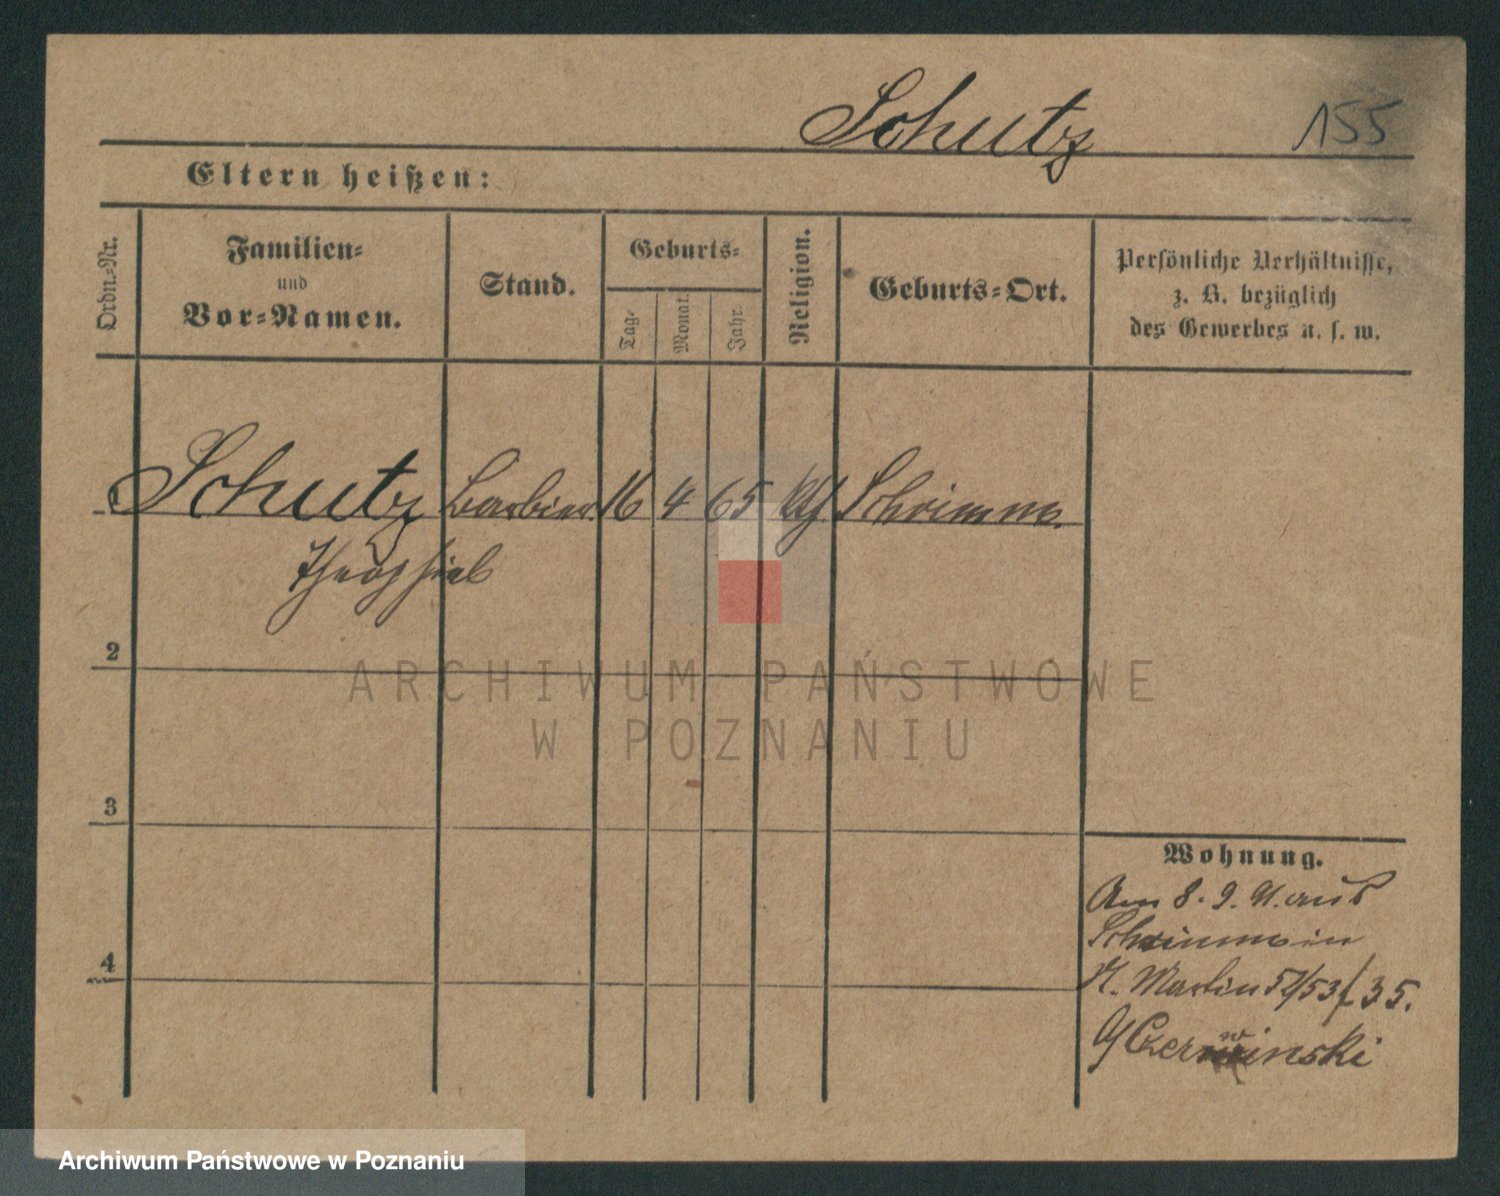 Schutz 155
Eltern heißen:
Ordn.=Nr.
Familien=
und
Vor=Namen.
Stand.
Geburts=
Tag.
Monat.
Jahr.
Religion.
Geburts=Ort.
Persönliche Verhältnisse,
z. B. bezüglich
des Gewerbes u. s. w.
Schutz Barbier 16 4 65 Schrimm.
Theophiel
2
ARCHIWUM PAŃSTWOWE
W POZNANIU
3
Wohnung.
Am 8. 9. 91. aus
Schrimm in
St. Martin 52/53 35.
Czerwinski
4
Archiwum Państwowe w Poznaniu